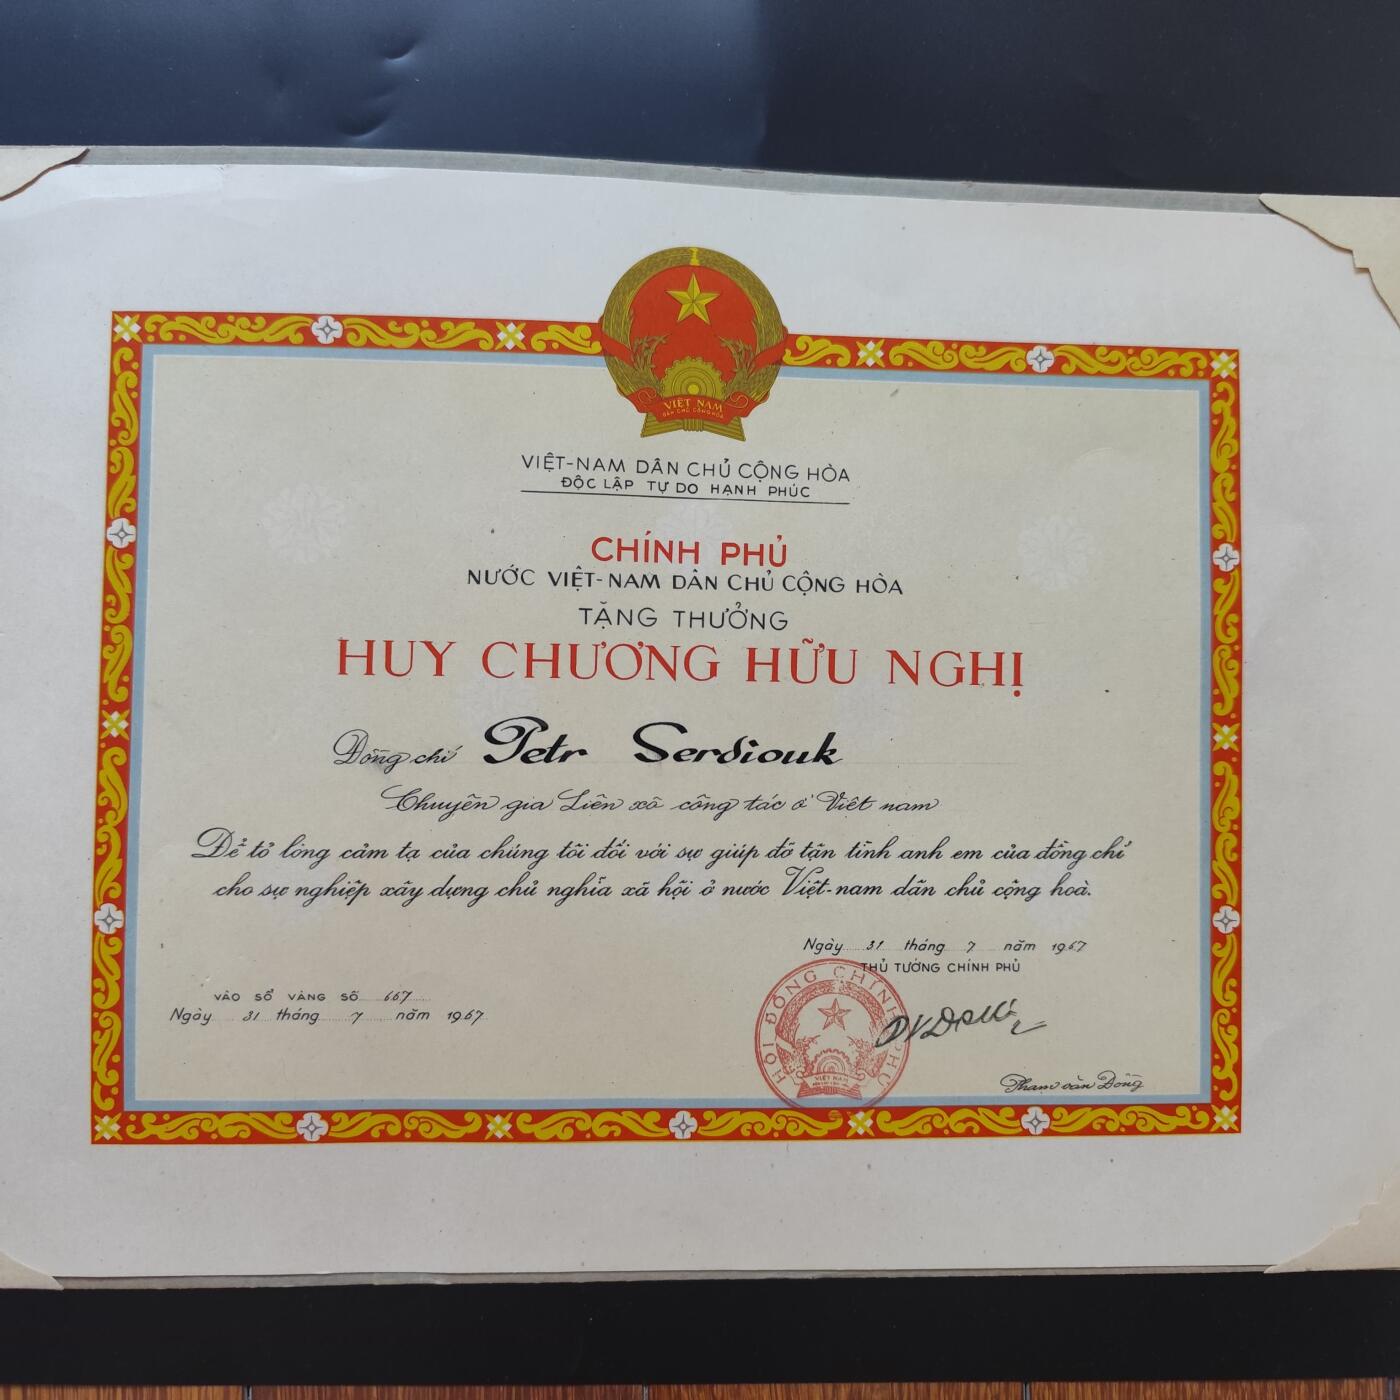 VIỆT NAM
DÂN CHỦ CỘNG HÒA
VIỆT-NAM DÂN CHỦ CỘNG HÒA
ĐỘC LẬP TỰ DO HẠNH PHÚC
CHÍNH PHỦ
NƯỚC VIỆT-NAM DÂN CHỦ CỘNG HÒA
TẶNG THƯỞNG
HUY CHƯƠNG HỮU NGHỊ
Đồng chí Petr Serdiouk
Chuyên gia Liên xô công tác ở Việt nam
Để tỏ lòng cảm tạ của chúng tôi đối với sự giúp đỡ tận tình anh em của đồng chí
cho sự nghiệp xây dựng chủ nghĩa xã hội ở nước Việt-nam dân chủ cộng hoà.
Ngày 31 tháng 7 năm 1967
THỦ TƯỚNG CHÍNH PHỦ
VÀO SỔ VÀNG SỐ 667
Ngày 31 tháng 7 năm 1967
HỘI ĐỒNG CHÍNH PHỦ
VIỆT NAM
Phạm văn Đồng